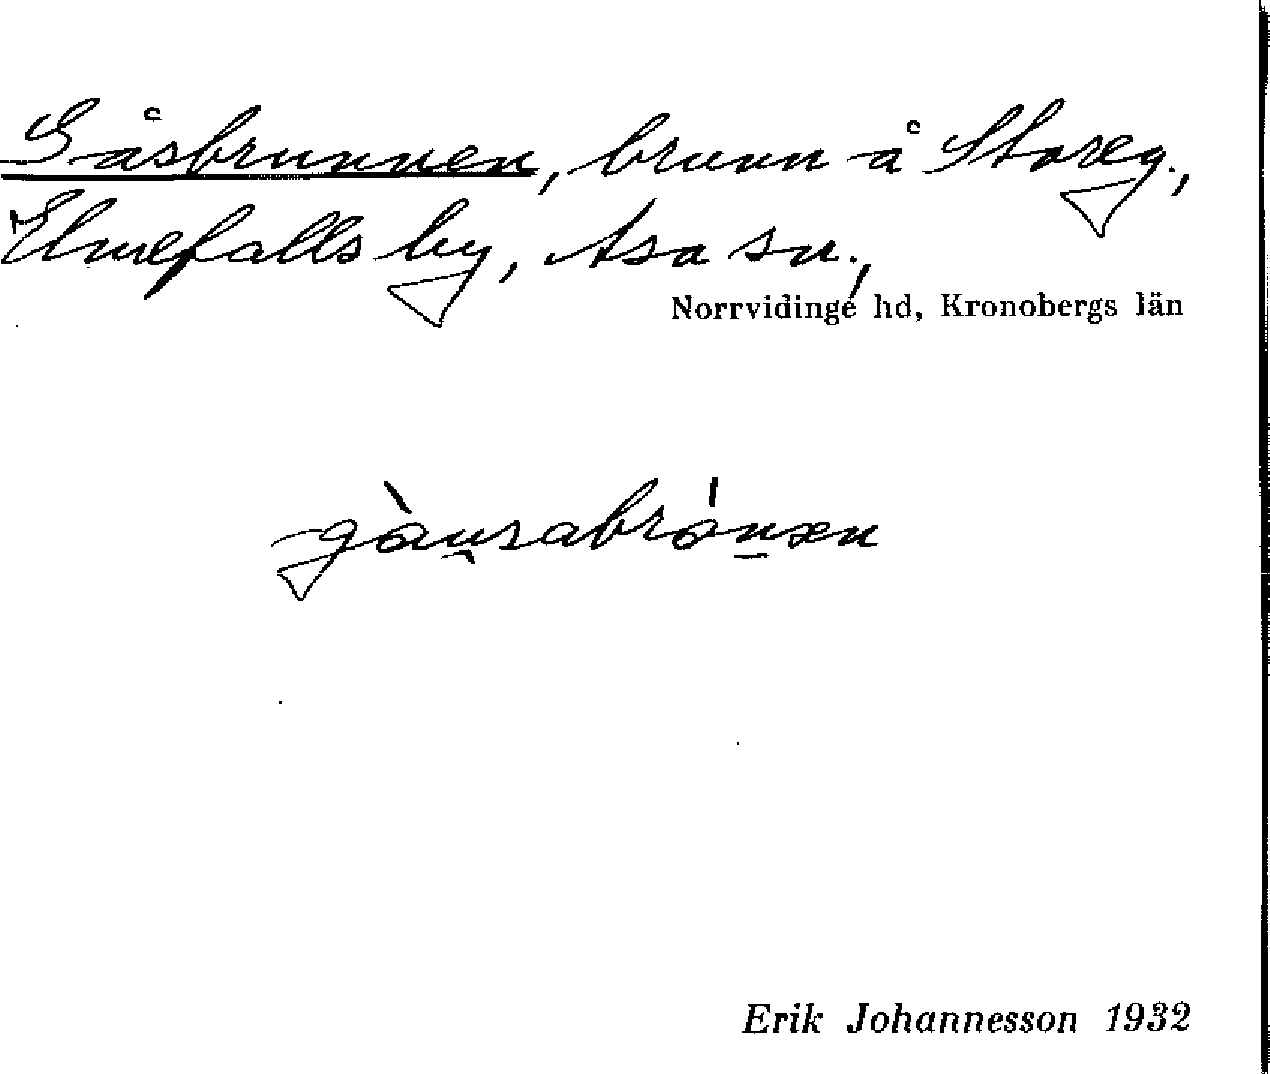 Gåsbrunnen, brunn å Storeg.,
Elmefalls by, Asa sn.,
Norrvidinge hd, Kronobergs län
gàu̯sabrón̲æn
Erik Johannesson 1932